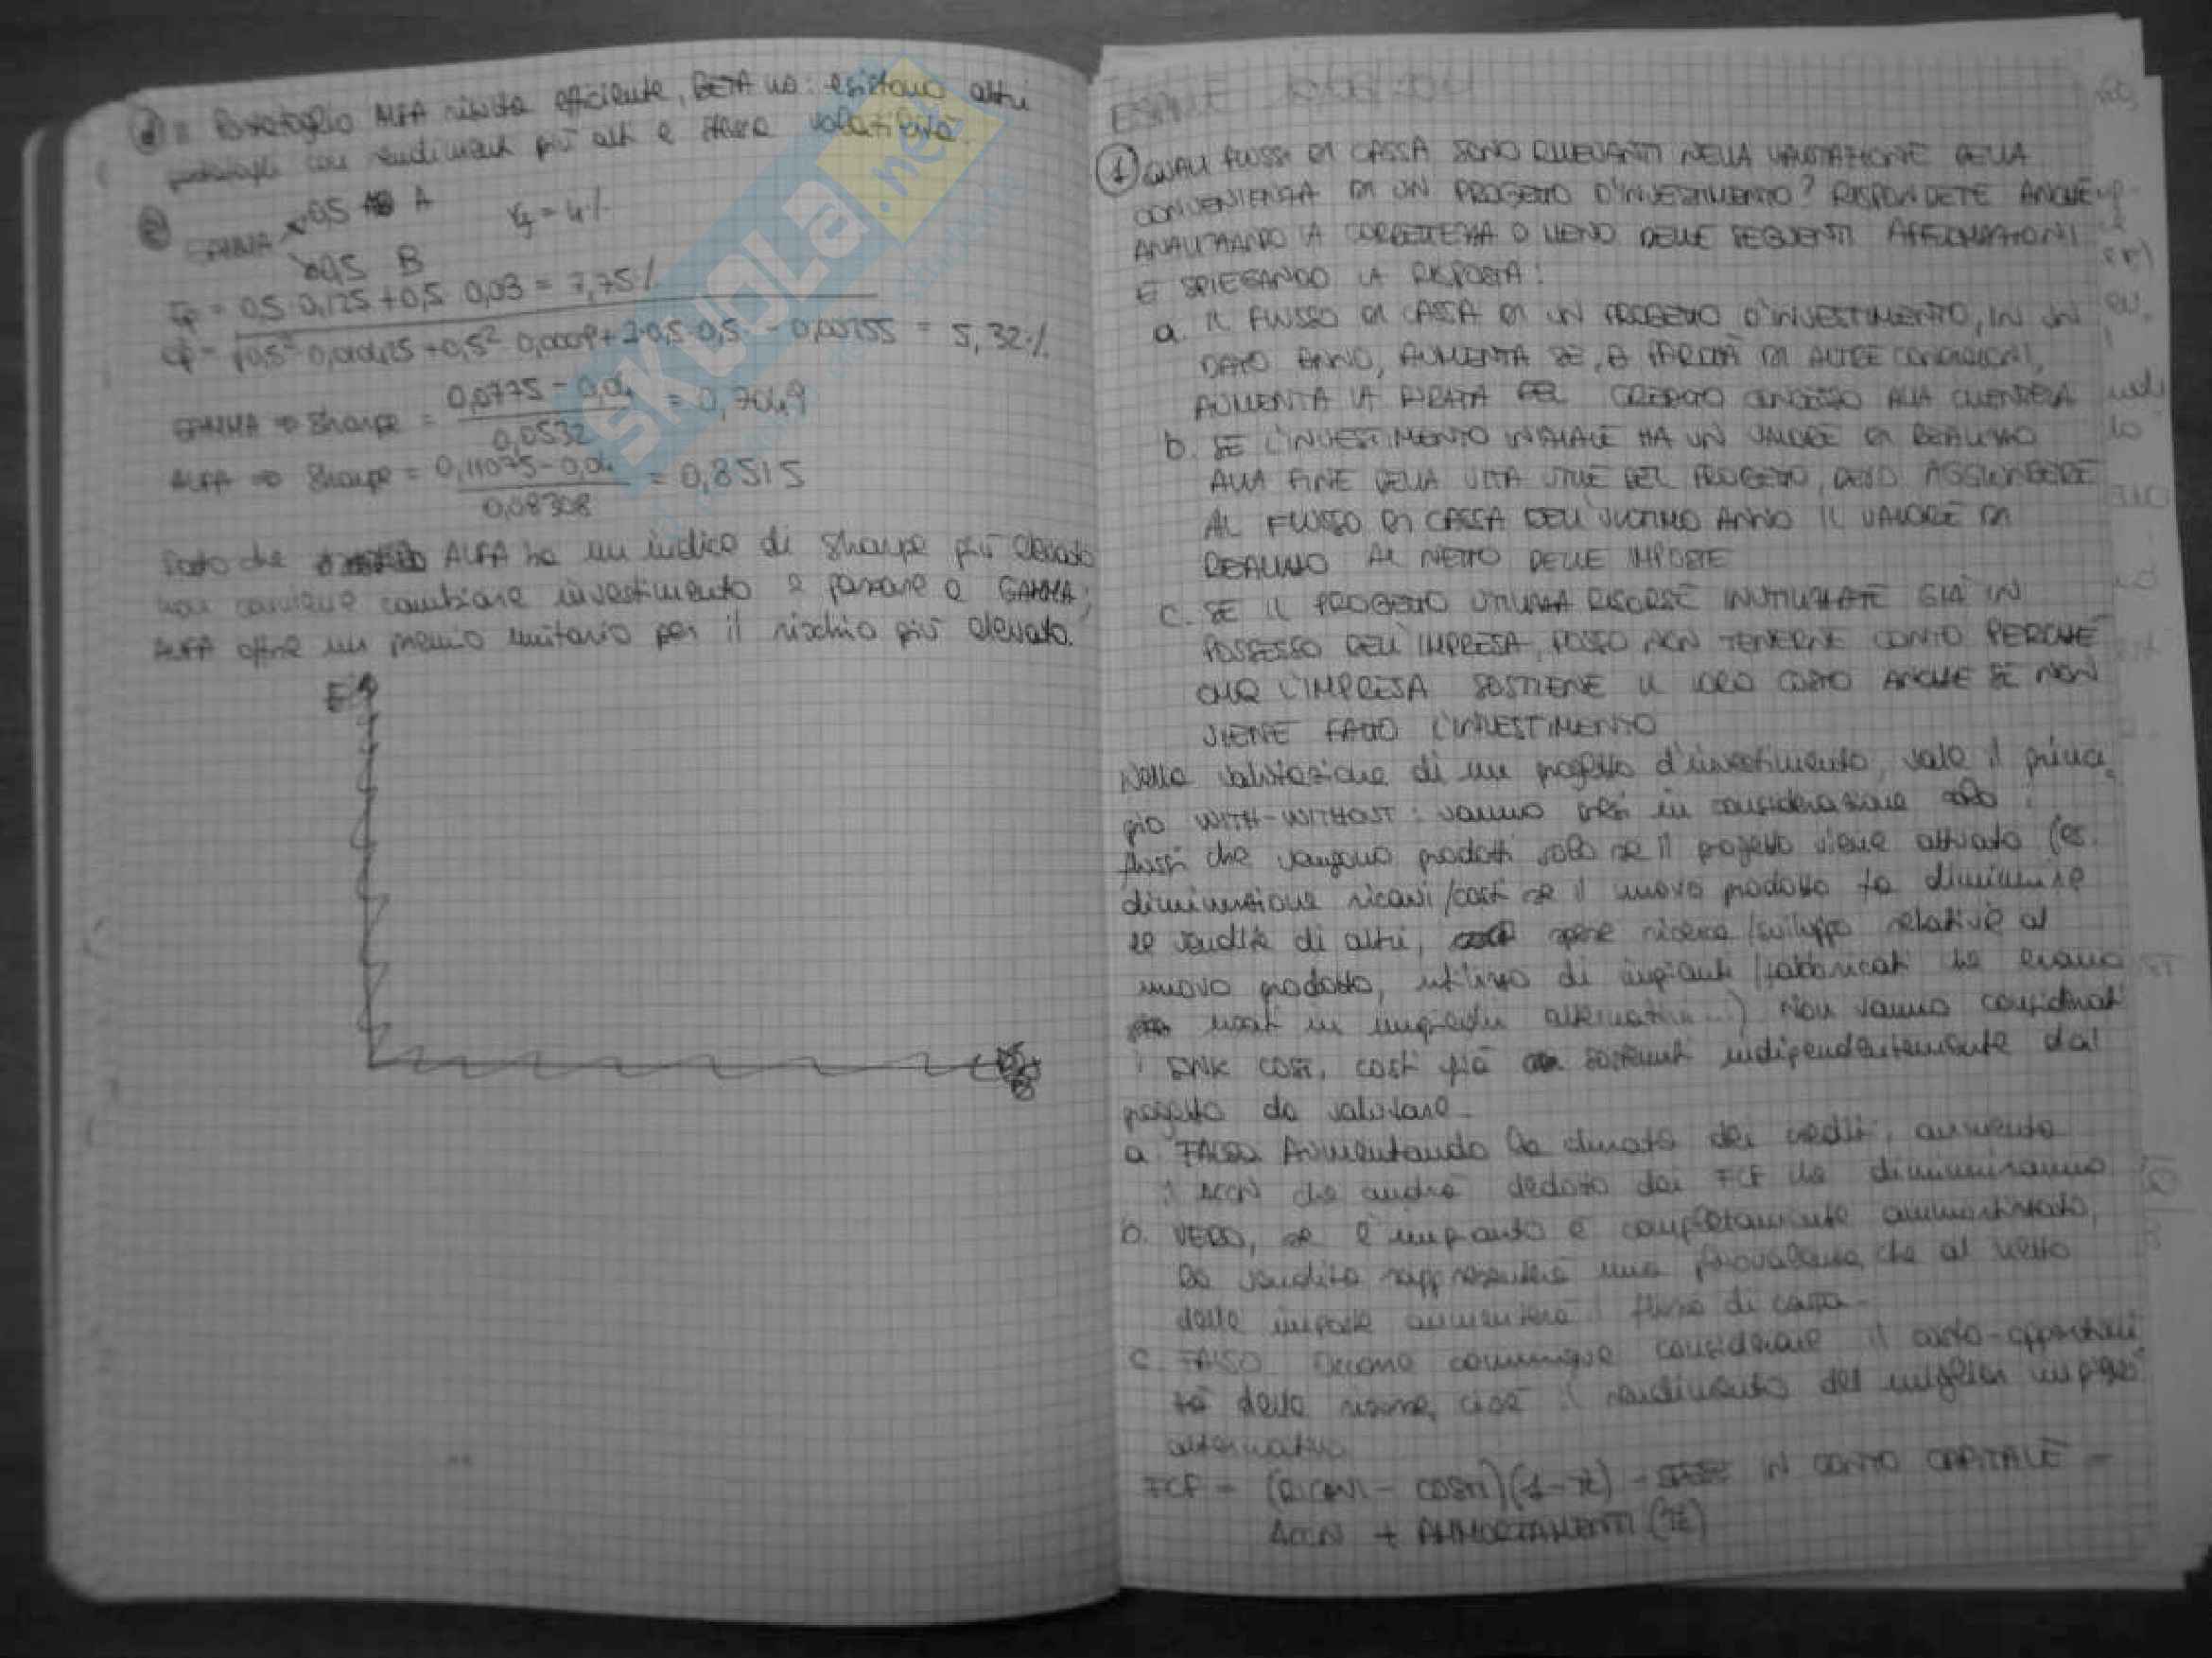 d. Portafoglio ALFA risulta efficiente, BETA no: esistono altri
portafogli con rendimenti più alti e stessa volatilità.
e GAMMA 0,5 A rf = 4%
0,5 B
= 0,5 · 0,125 + 0,5 · 0,03 = 7,75%
0,5² · + 0,5² · 0,0009 + 2 · 0,5 · 0,5 · - 0,00255 = 5,32%
GAMMA ⇒ Sharpe = 0,0775 - 0,04 / 0,0532 = 0,7049
ALFA ⇒ Sharpe = 0,11075 - 0,04 / 0,08308 = 0,8515
Dato che ALFA ha un indice di Sharpe più elevato
non conviene cambiare investimento e passare a GAMMA;
ALFA offre un premio unitario per il rischio più elevato.
E
SKUOLA.net
ESAME
1 QUALI FLUSSI DI CASSA SONO RILEVANTI NELLA VALUTAZIONE DELLA
CONVENIENZA DI UN PROGETTO D'INVESTIMENTO? RISPONDETE ANCHE
ANALIZZANDO LA CORRETTEZZA O MENO DELLE SEGUENTI AFFERMAZIONI
E SPIEGANDO LA RISPOSTA:
a. IL FLUSSO DI CASSA DI UN PROGETTO D'INVESTIMENTO, IN UN
DATO ANNO, AUMENTA SE, A PARITÀ DI ALTRE CONDIZIONI,
AUMENTA LA DURATA DEL CREDITO CONCESSO ALLA CLIENTELA
b. SE L'INVESTIMENTO INIZIALE HA UN VALORE DI REALIZZO
ALLA FINE DELLA VITA UTILE DEL PROGETTO, DEVO AGGIUNGERE
AL FLUSSO DI CASSA DELL'ULTIMO ANNO IL VALORE DI
REALIZZO AL NETTO DELLE IMPOSTE
c. SE IL PROGETTO UTILIZZA RISORSE INUTILIZZATE GIÀ IN
POSSESSO DELL'IMPRESA, POSSO NON TENERNE CONTO PERCHÉ
CMQ L'IMPRESA SOSTIENE IL LORO COSTO ANCHE SE NON
VIENE FATTO L'INVESTIMENTO
Nella valutazione di un progetto d'investimento, vale il princi
pio WITH-WITHOUT: vanno presi in considerazione solo i
flussi che vengono prodotti solo se il progetto viene attivato (es.
diminuzione ricavi/costi se il nuovo prodotto fa diminuire
le vendite di altri, spese ricerca/sviluppo relative al
nuovo prodotto, utilizzo di impianti/fabbricati che erano
usati in impieghi alternativi...) Non vanno considerati
i SUNK COST, costi già sostenuti indipendentemente dal
progetto da valutare.
a FALSO Aumentando la durata dei crediti, aumenta
il ΔCCN che andrà dedotto dai FCF che diminuiranno
b. VERO, se l'impianto è completamente ammortizzato,
la vendita rappresenterà una plusvalenza che al netto
delle imposte aumenterà il flusso di cassa.
c. FALSO. Occorre comunque considerare il costo-opportuni
tà delle risorse, cioè il rendimento del miglior impiego
alternativo
FCF = (RICAVI - COSTI)(1 - τc) - SPESE IN CONTO CAPITALE -
ΔCCN + AMMORTAMENTI (τc)